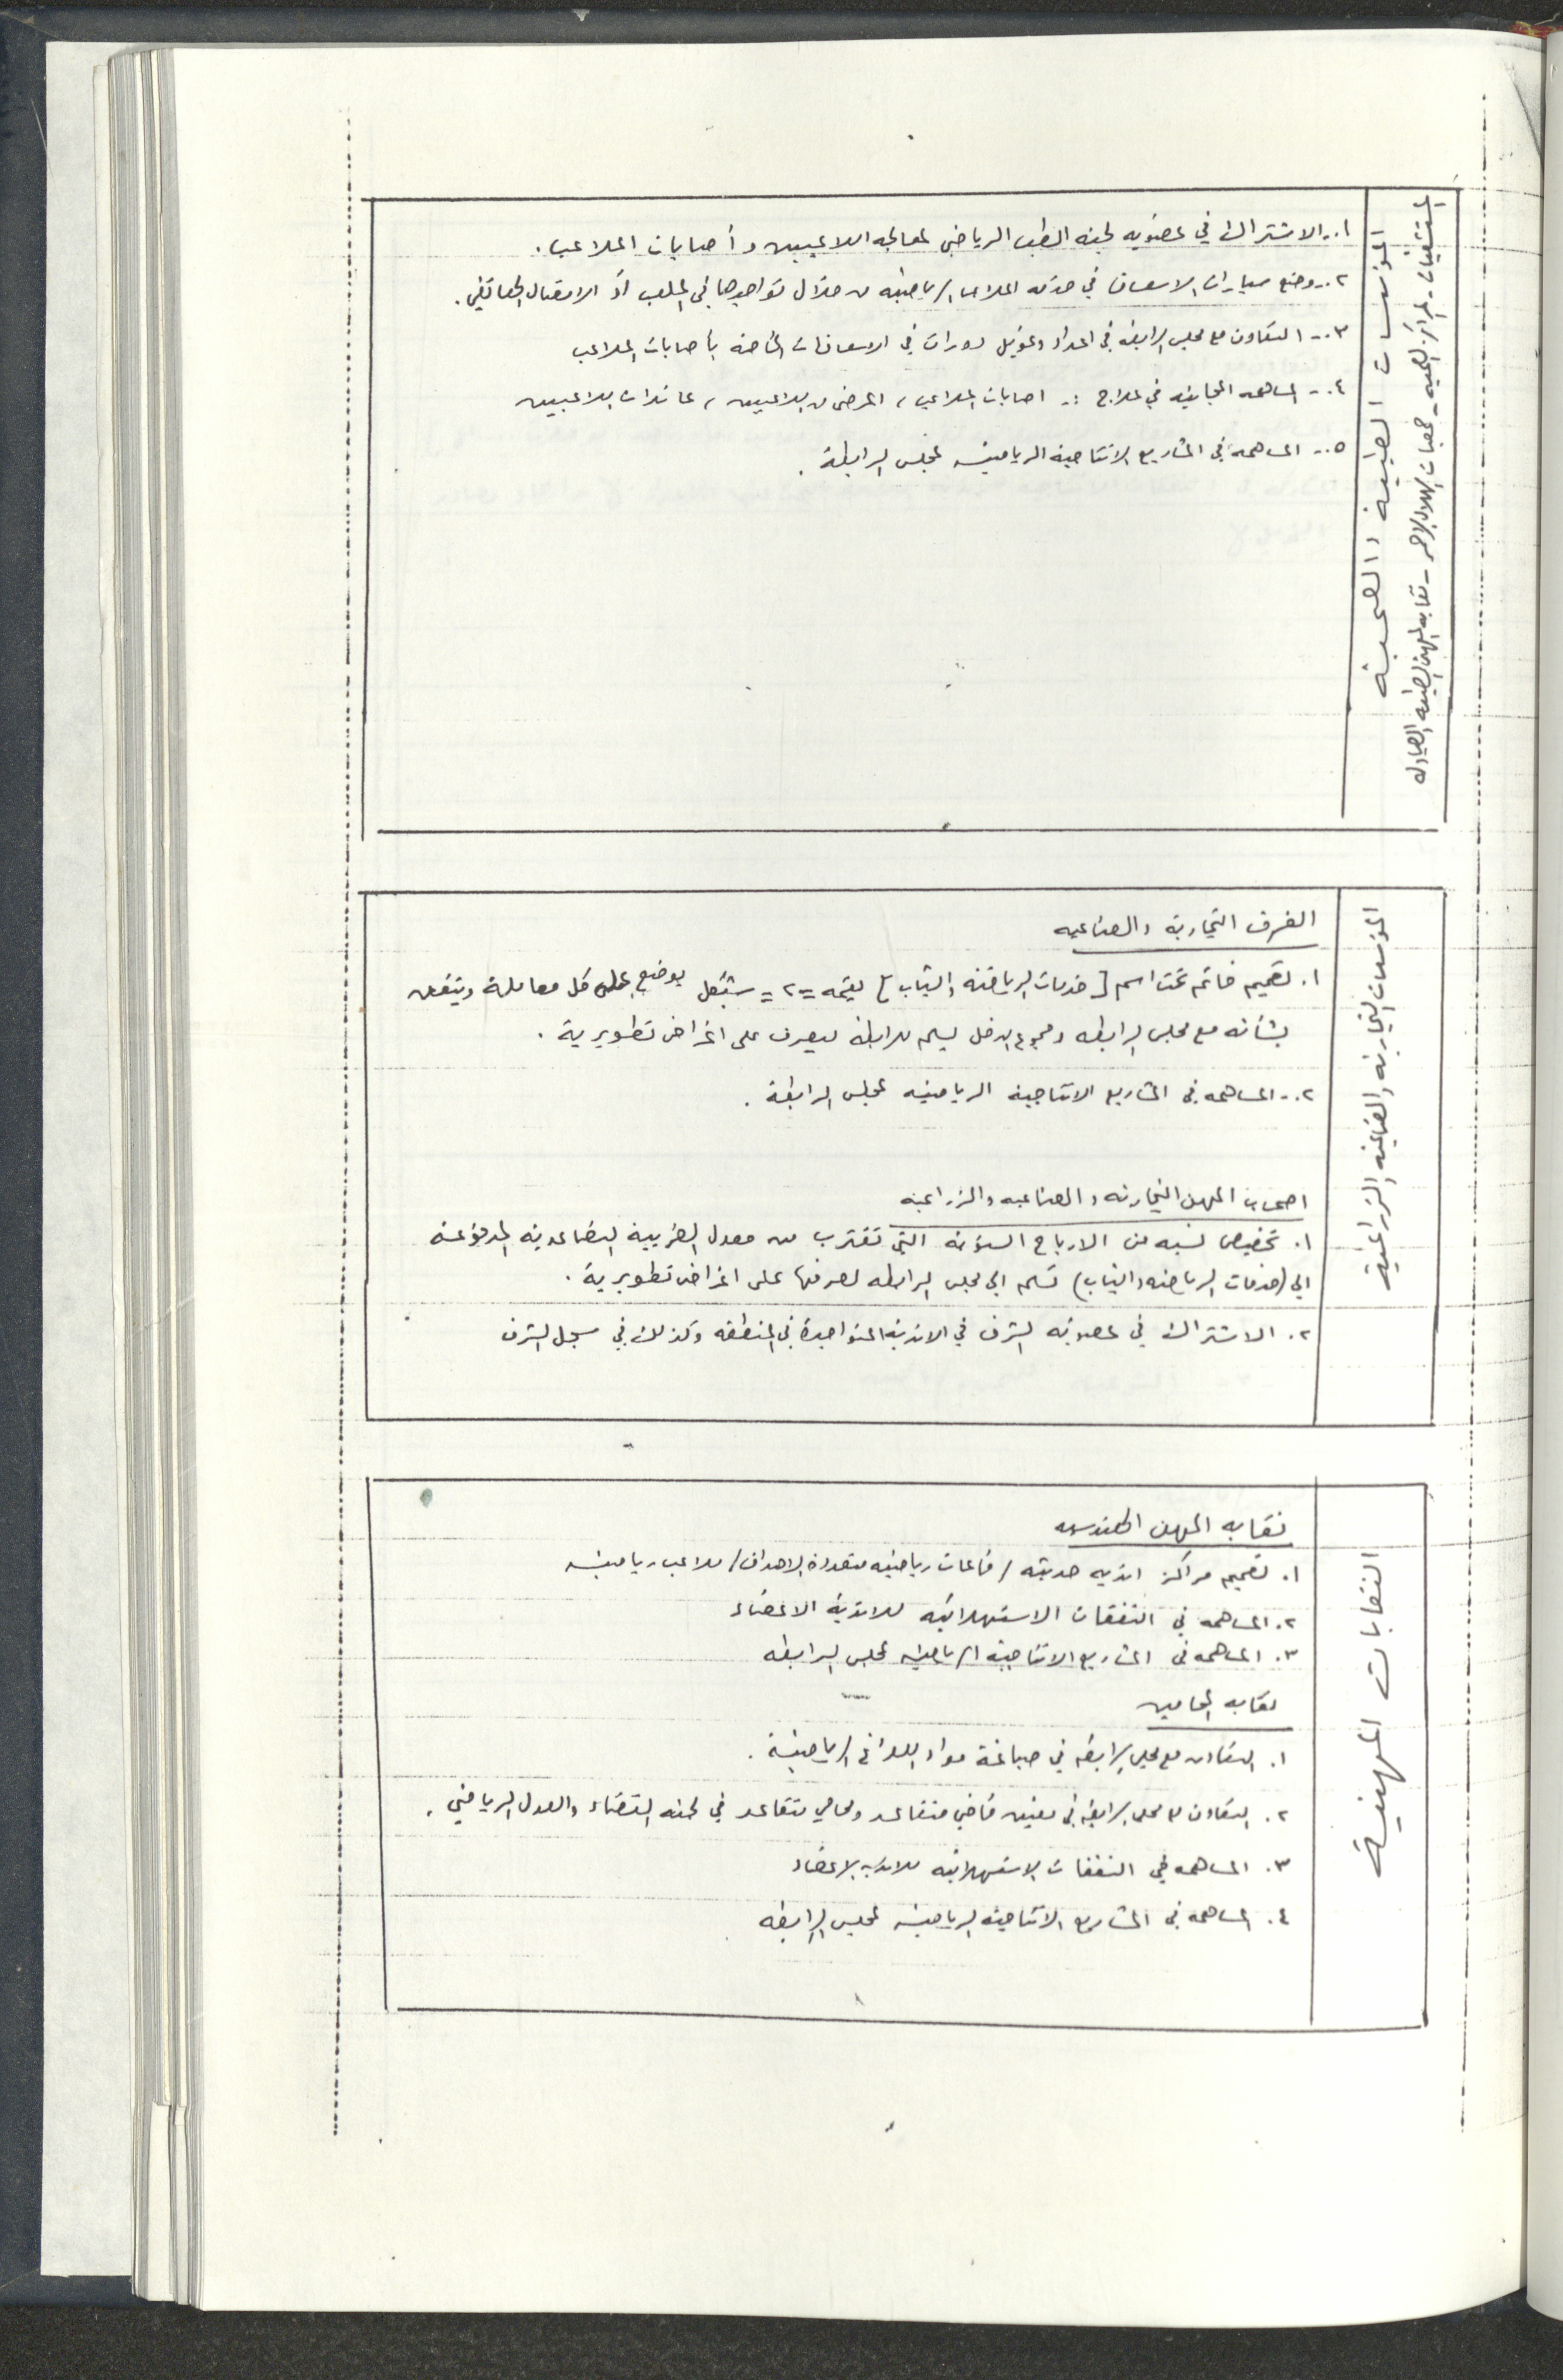 المؤسسات الطبية والصحية
المستشفيات - المراكز الصحية - جمعيات الهلال الاحمر - نقابه المهن الطبيه الصيادله
١.- الاشتراك في عضويه لجنه الطب الرياضي لمعالجه اللاعبين وأصابات الملاعب.
٢.- وضع سيارات الاسعاف في خدمه الملاعب الرياضيه من خلال تواجدها في الملعب أو الاتصال الهاتفي.
٣.- التعاون مع مجلس الرابطه في اعداد وتمويل دورات في الاسعافات الخاصه بأصابات الملاعب
٤.- المساهمه المجانيه في علاج :- اصابات الملاعب، المرضى من اللاعبين، عائدات اللاعبين
٥.- المساهمه في المشاريع الانتاجية الرياضيه لمجلس الرابطة.
المؤسسات التجارية والصناعية والزراعية
الغرف التجارية والصناعيه
١. تصميم خاتم تحت اسم [خدمات الرياضه والشباب] بقيمه =٢= شيقل يوضع على كل معاملة ويتفق
بشأنه مع مجلس الرابطه ومجموع الدخل يسلم للرابطة ليصرف على اغراض تطويرية.
٢.- المساهمه في المشاريع الانتاجية الرياضيه لمجلس الرابطة.
اصحاب المهن التجاريه والصناعيه والزراعيه
١. تخصيص نسبه من الارباح السنويه التي تقترب من معدل الضريبية التصاعديه المدفوعة
الى (خدمات الرياضه والشباب) تسلم الى مجلس الرابطه لصرفها على اغراض تطويرية.
٢. الاشتراك في عضويه الشرف في الانديه المتواجدة في المنطقه وكذلك في سجل الشرف
النقابات المهنية
نقابه المهن الهندسيه
١. تصميم مراكز انديه حديثه / قاعات رياضيه متعددة الاهداف / ملاعب رياضيه
٢. المساهمه في النفقات الاستهلاكيه للاندية الاعضاء
٣. المساهمه في المشاريع الانتاجية الرياضيه لمجلس الرابطه
نقابه المحامين
١. التعاون مع مجلس الرابطه في صياغة مواد اللوائح الرياضية.
٢. التعاون مع مجلس الرابطه في تعيين قاضي متقاعد ومحامي متقاعد في لجنه القضاء والعدل الرياضي.
٣. المساهمه في النفقات الاستهلاكيه للانديه الاعضاء
٤. المساهمه في المشاريع الانتاجيه الرياضيه لمجلس الرابطه